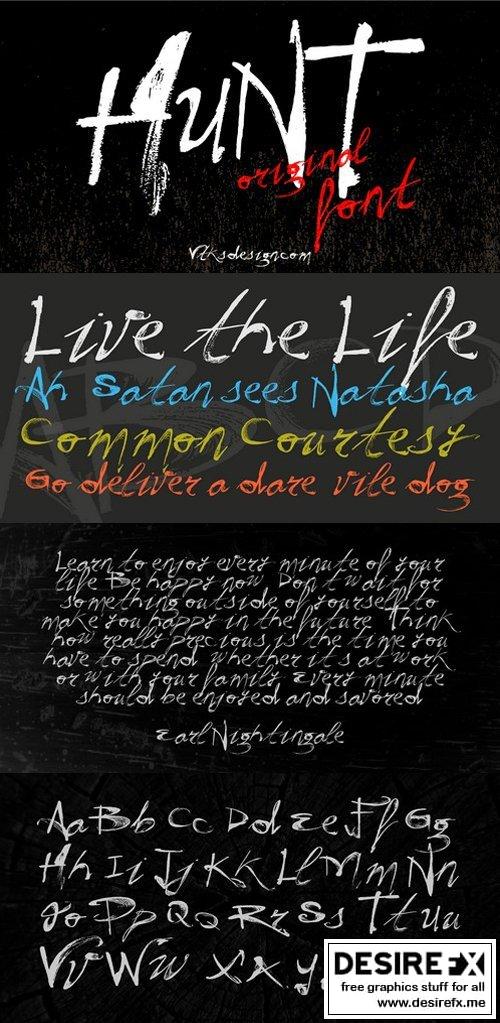 HuNT
original
font
Vtksdesign.com
Live the Life
Ah Satan sees Natasha
Common Courtesy
Go deliver a dare vile dog
Learn to enjoy every minute of your
life Be happy now Don t wait for
something outside of yourself to
make you happy in the future Think
how really precious is the time you
have to spend whether it s at work
or with your family Every minute
should be enjoyed and savored
Earl Nightingale
Aa Bb Cc Dd Ee Ff Gg
Hh Ii Jj Kk Ll Mm Nn
Oo Pp Qq Rr Ss Tt Uu
Vv Ww Xx Y
DESIRE FX
free graphics stuff for all
www.desirefx.me